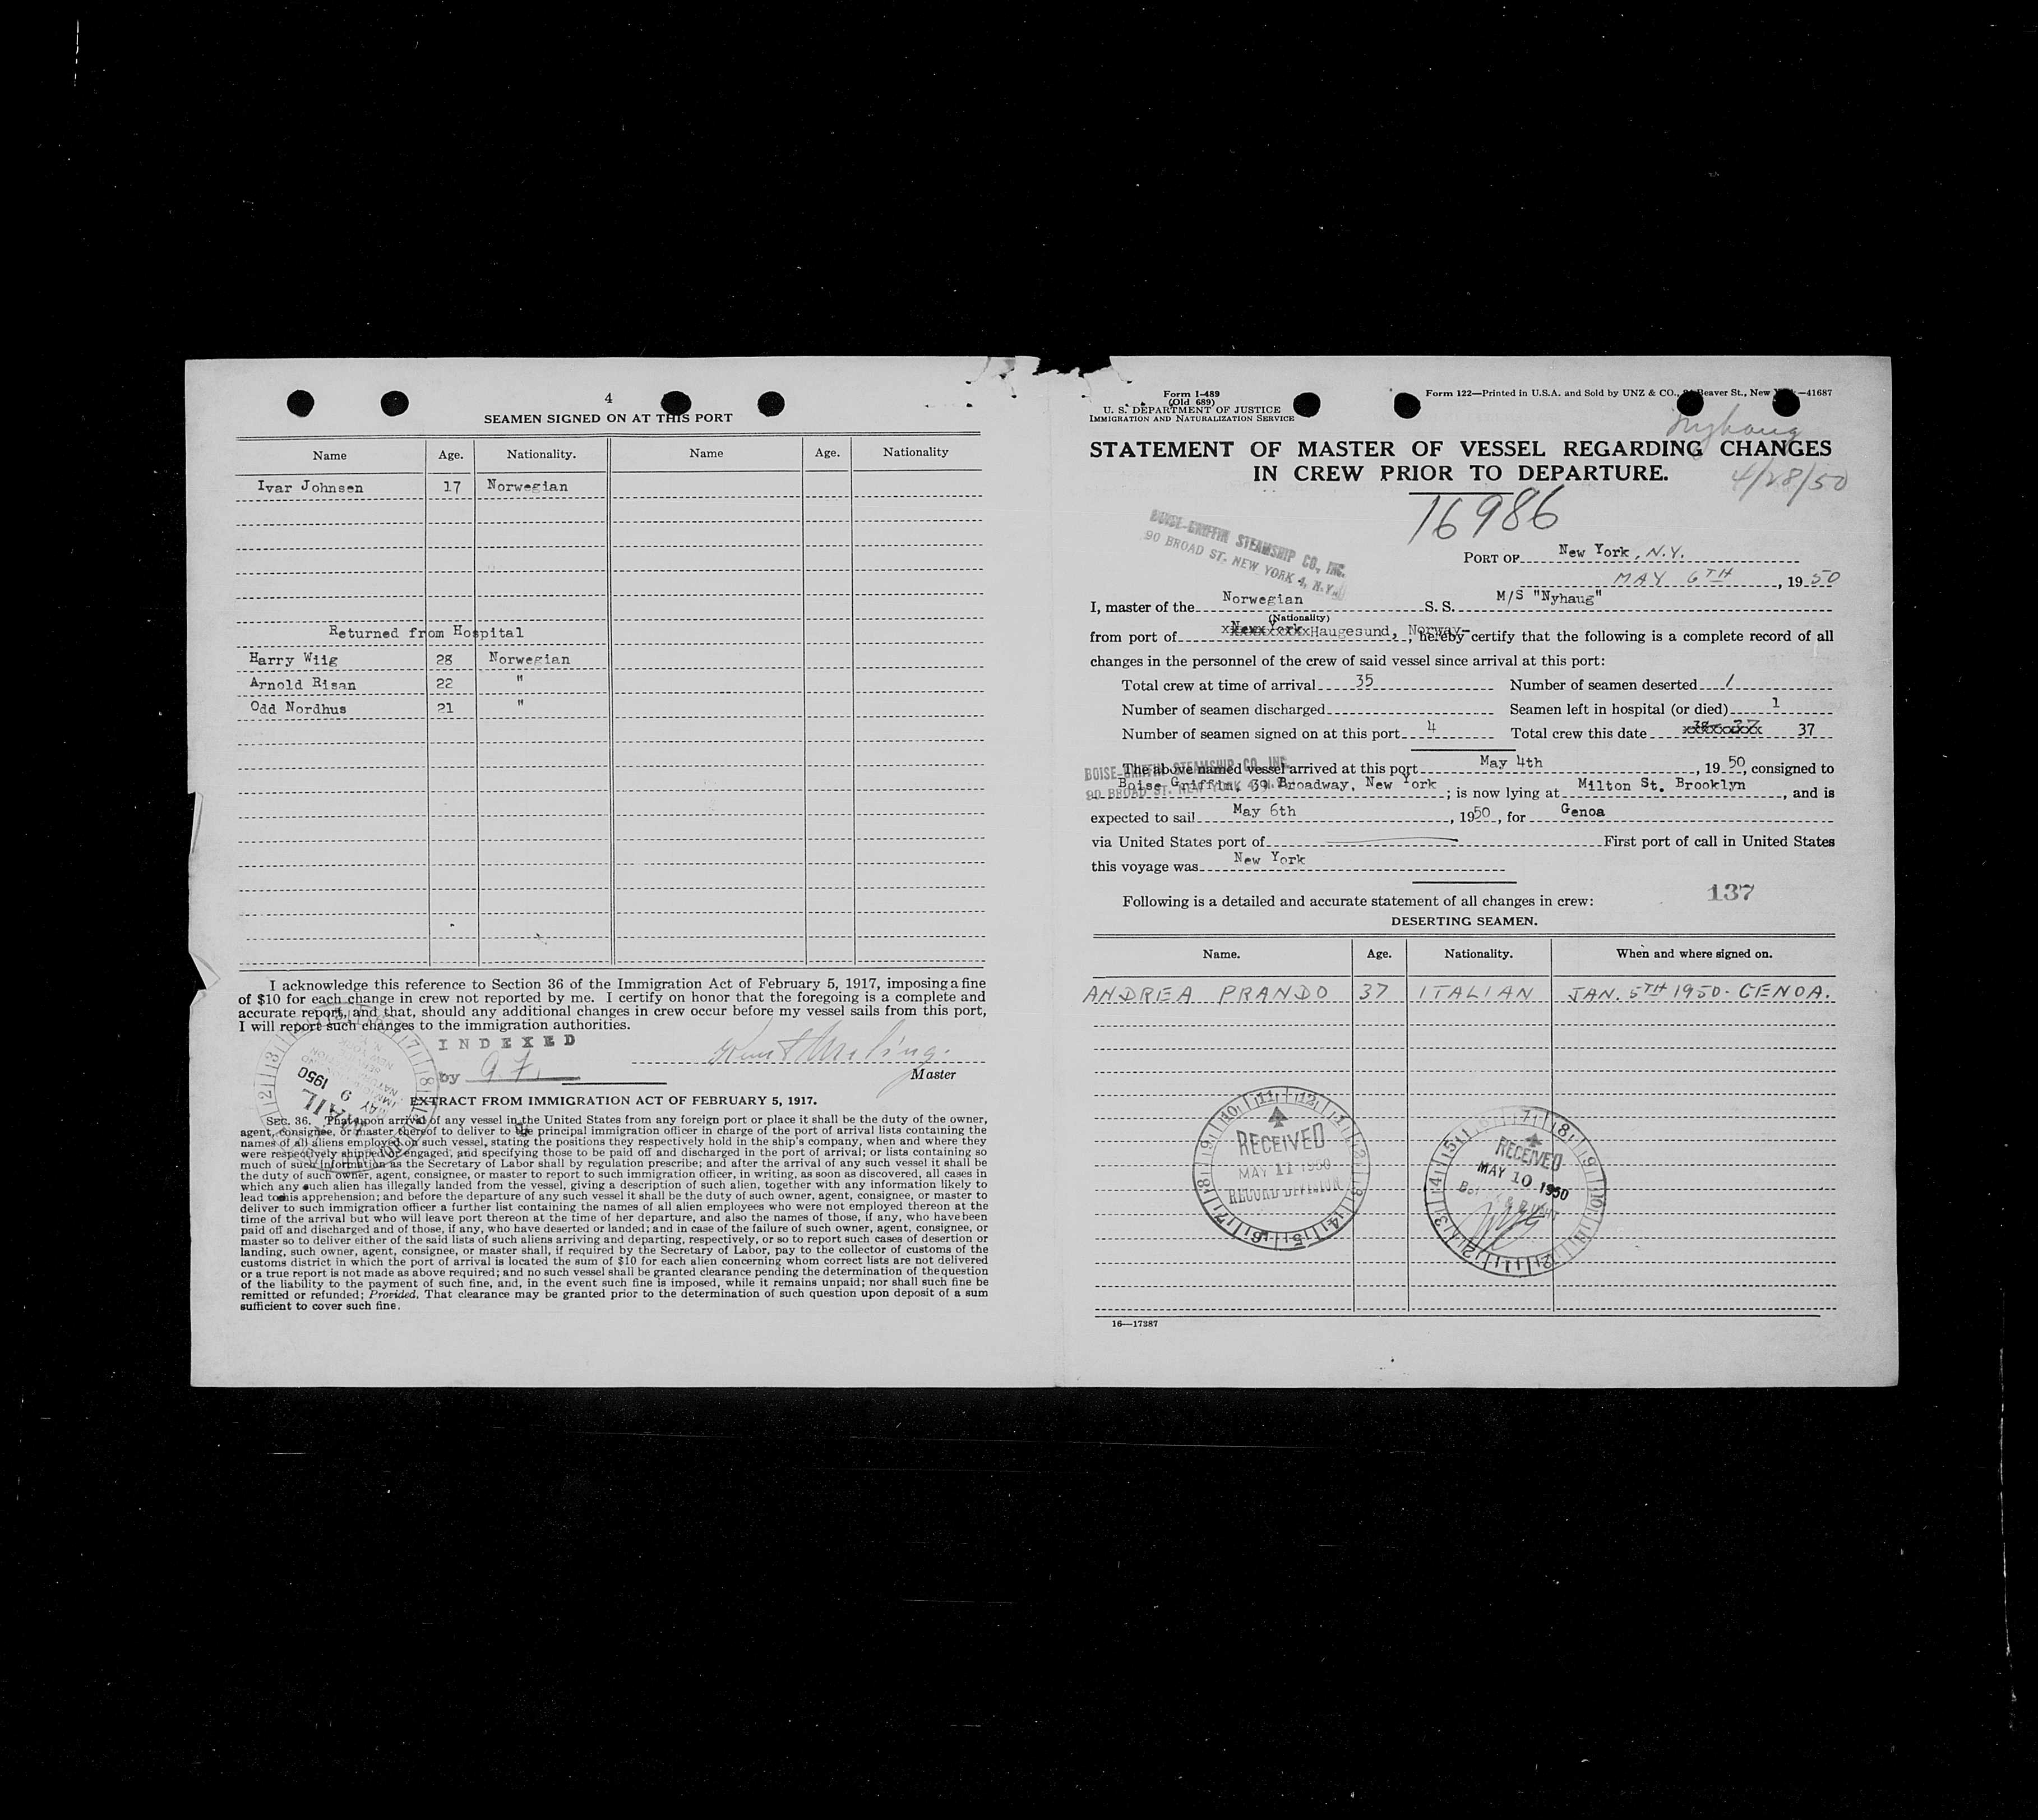 4
SEAMEN SIGNED ON AT THIS PORT
Name Age. Nationality. Name Age. Nationality
Ivar Johnsen 17 Norwegian
Returned from Hospital
Harry Wiig 28 Norwegian
Arnold Risan 22 "
Odd Nordhus 21 "
I acknowledge this reference to Section 36 of the Immigration Act of February 5, 1917, imposing a fine
of $10 for each change in crew not reported by me. I certify on honor that the foregoing is a complete and
accurate report, and that, should any additional changes in crew occur before my vessel sails from this port,
I will report such changes to the immigration authorities.
INDEXED
by
Master
MAIL
MAY 9 1950
EXTRACT FROM IMMIGRATION ACT OF FEBRUARY 5, 1917.
SEC. 36. That upon arrival of any vessel in the United States from any foreign port or place it shall be the duty of the owner,
agent, consignee, or master thereof to deliver to the principal immigration officer in charge of the port of arrival lists containing the
names of all aliens employed on such vessel, stating the positions they respectively hold in the ship's company, when and where they
were respectively shipped or engaged, and specifying those to be paid off and discharged in the port of arrival; or lists containing so
much of such information as the Secretary of Labor shall by regulation prescribe; and after the arrival of any such vessel it shall be
the duty of such owner, agent, consignee, or master to report to such immigration officer, in writing, as soon as discovered, all cases in
which any such alien has illegally landed from the vessel, giving a description of such alien, together with any information likely to
lead to his apprehension; and before the departure of any such vessel it shall be the duty of such owner, agent, consignee, or master to
deliver to such immigration officer a further list containing the names of all alien employees who were not employed thereon at the
time of the arrival but who will leave port thereon at the time of her departure, and also the names of those, if any, who have been
paid off and discharged and of those, if any, who have deserted or landed; and in case of the failure of such owner, agent, consignee, or
master so to deliver either of the said lists of such aliens arriving and departing, respectively, or so to report such cases of desertion or
landing, such owner, agent, consignee, or master shall, if required by the Secretary of Labor, pay to the collector of customs of the
customs district in which the port of arrival is located the sum of $10 for each alien concerning whom correct lists are not delivered
or a true report is not made as above required; and no such vessel shall be granted clearance pending the determination of the question
of the liability to the payment of such fine, and, in the event such fine is imposed, while it remains unpaid; nor shall such fine be
remitted or refunded; Provided, That clearance may be granted prior to the determination of such question upon deposit of a sum
sufficient to cover such fine.
Form I-489
(Old 689)
U. S. DEPARTMENT OF JUSTICE
IMMIGRATION AND NATURALIZATION SERVICE
Form 122—Printed in U.S.A. and Sold by UNZ & CO., Beaver St., New —41687
Nyhaug
STATEMENT OF MASTER OF VESSEL REGARDING CHANGES
IN CREW PRIOR TO DEPARTURE.
4/28/50
16986
BOISE-GRIFFIN STEAMSHIP CO., INC.
90 BROAD ST. NEW YORK 4, N.Y.
PORT OF New York, N.Y.
MAY 6TH, 1950
I, master of the Norwegian S. S. M/S "Nyhaug"
(Nationality)
from port of New York Haugesund, Norway, hereby certify that the following is a complete record of all
changes in the personnel of the crew of said vessel since arrival at this port:
Total crew at time of arrival 35 Number of seamen deserted 1
Number of seamen discharged Seamen left in hospital (or died) 1
Number of seamen signed on at this port 4 Total crew this date 37
BOISE-GRIFFIN STEAMSHIP CO., INC.
90 BROAD ST. NEW YORK 4, N.Y.
The above named vessel arrived at this port May 4th, 1950, consigned to
Boise Griffin, 39 Broadway, New York; is now lying at Milton St. Brooklyn, and is
expected to sail May 6th, 1950, for Genoa
via United States port of First port of call in United States
this voyage was New York
137
Following is a detailed and accurate statement of all changes in crew:
DESERTING SEAMEN.
Name. Age. Nationality. When and where signed on.
ANDREA PRANDO 37 ITALIAN JAN. 5TH 1950-GENOA.
RECEIVED
MAY 11 1950
RECORD DIVISION
RECEIVED
MAY 10 1950
16—17387